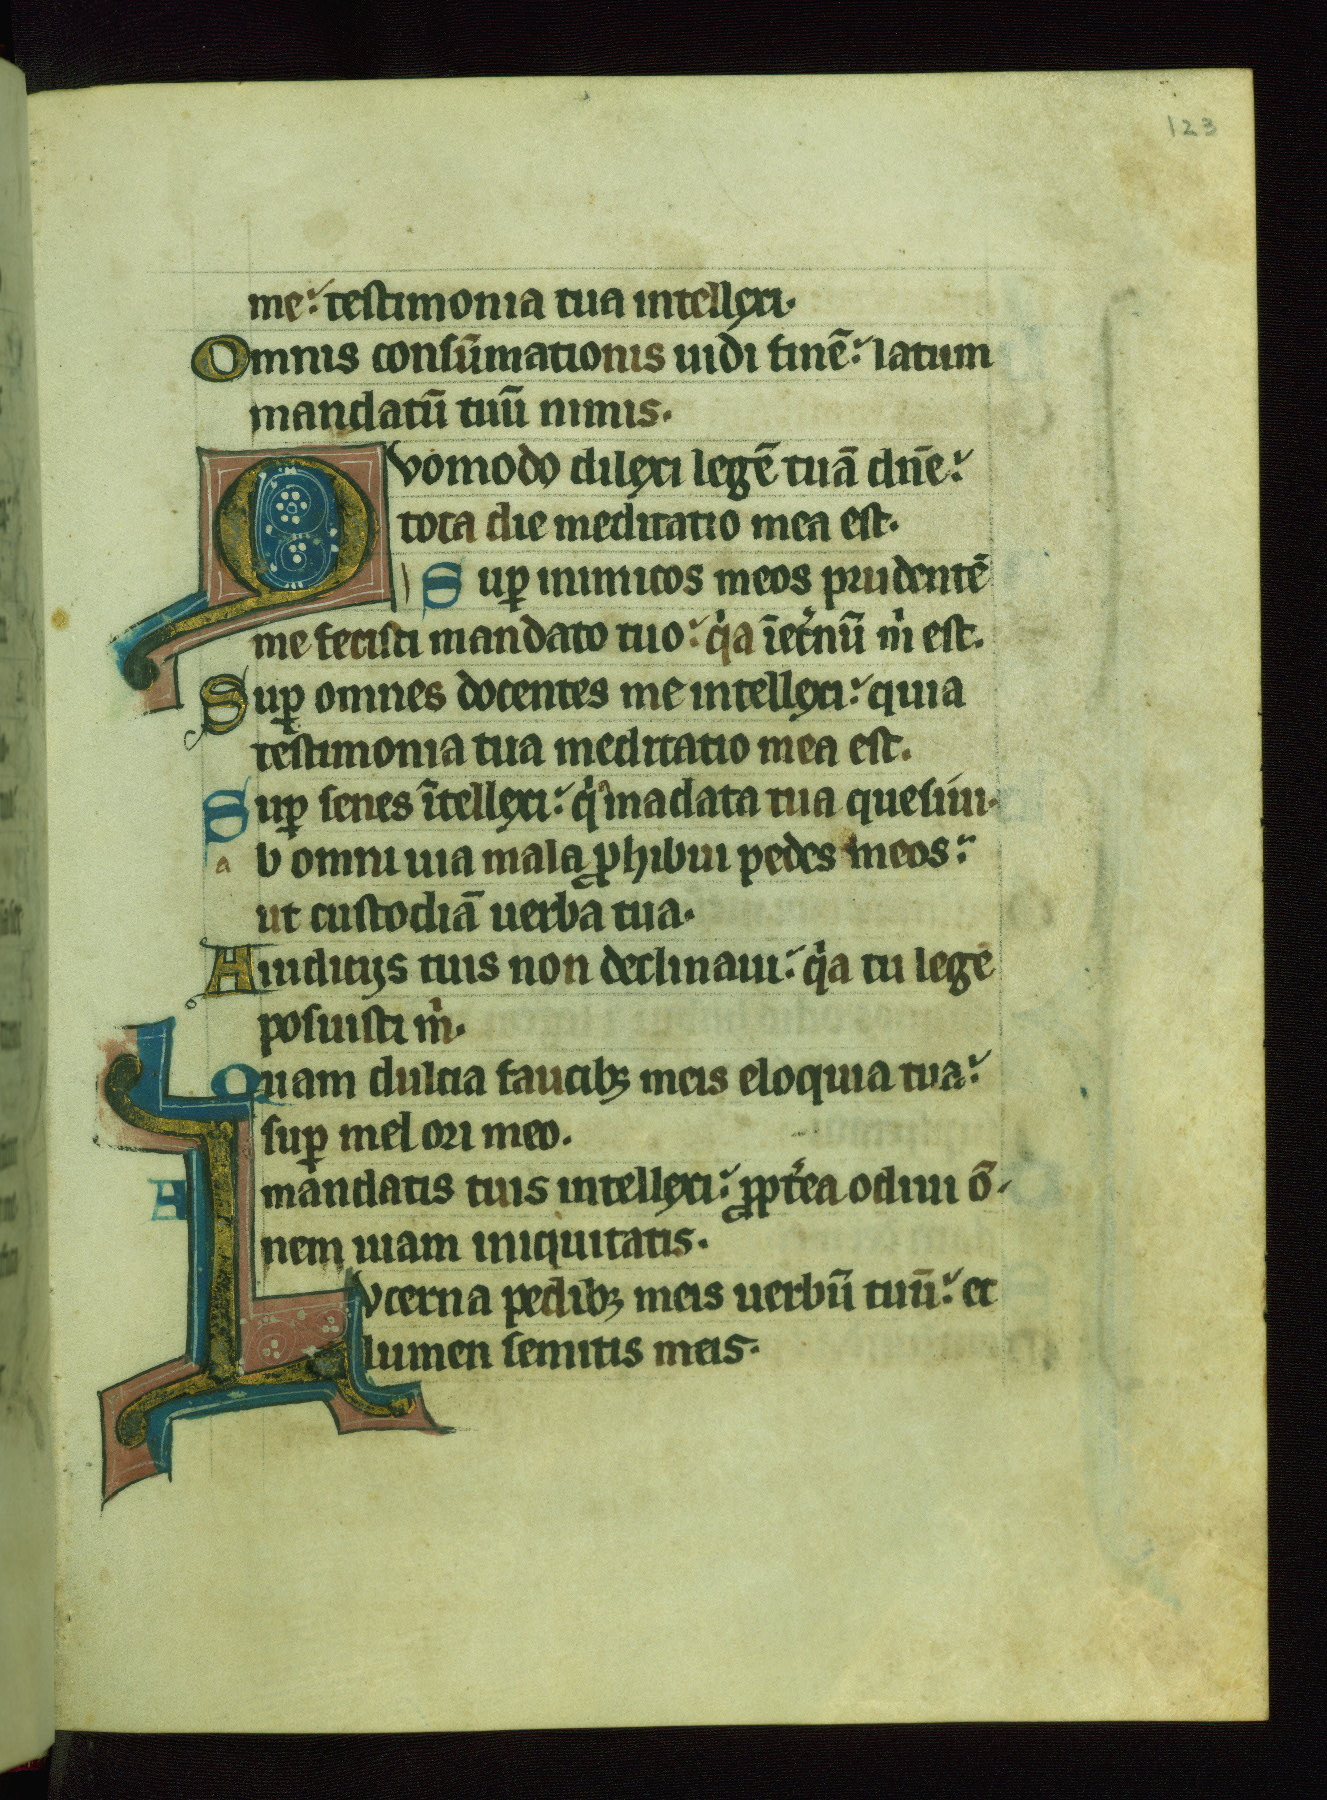 123
me: testimonia tua intellexi.
Omnis consūmationis uidi finē: latum
mandatū tuū nimis.
Qvomodo dilexi legē tuā dn̄e:
tota die meditatio mea est.
Sup̲ inimicos meos prudentē
me fecisti mandato tuo: qͥa īet͛nū m̍ est.
Sup̲ omnes docentes me intellexi: quia
testimonia tua meditatio mea est.
Sup̲ senes ītellexi: qͥ madata tua quesiui.
ab omni uia mala ꝓhibui pedes meos:
ut custodiā uerba tua.
A iudicijs tuis non declinaui: qͥa tu legē
posuisti m̍.
Quam dulcia faucibꝫ meis eloquia tua:
sup̲ mel ori meo.
A mandatis tuis intellexi: ꝓpt͛ea odiui ō-
nem uiam iniquitatis.
Lvcerna pedibꝫ meis uerbū tuū: et
lumen semitis meis.